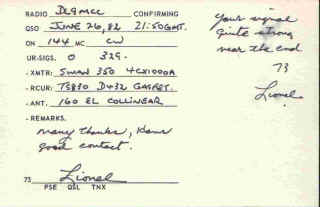 RADIO DL9MCC CONFIRMING
QSO JUNE 26, 82 21:50 GMT.
ON 144 MC CW
UR-SIGS. O 329.
- XMTR: SWAN 350 4CX1000A
- RCUR: TS830 D432 GASFET.
- ANT. 160 EL COLLINEAR
- REMARKS.
many thanks, Hans
good contact.
73 Lionel
PSE QSL TNX
Your signal
quite strong
near the end
73
Lionel.